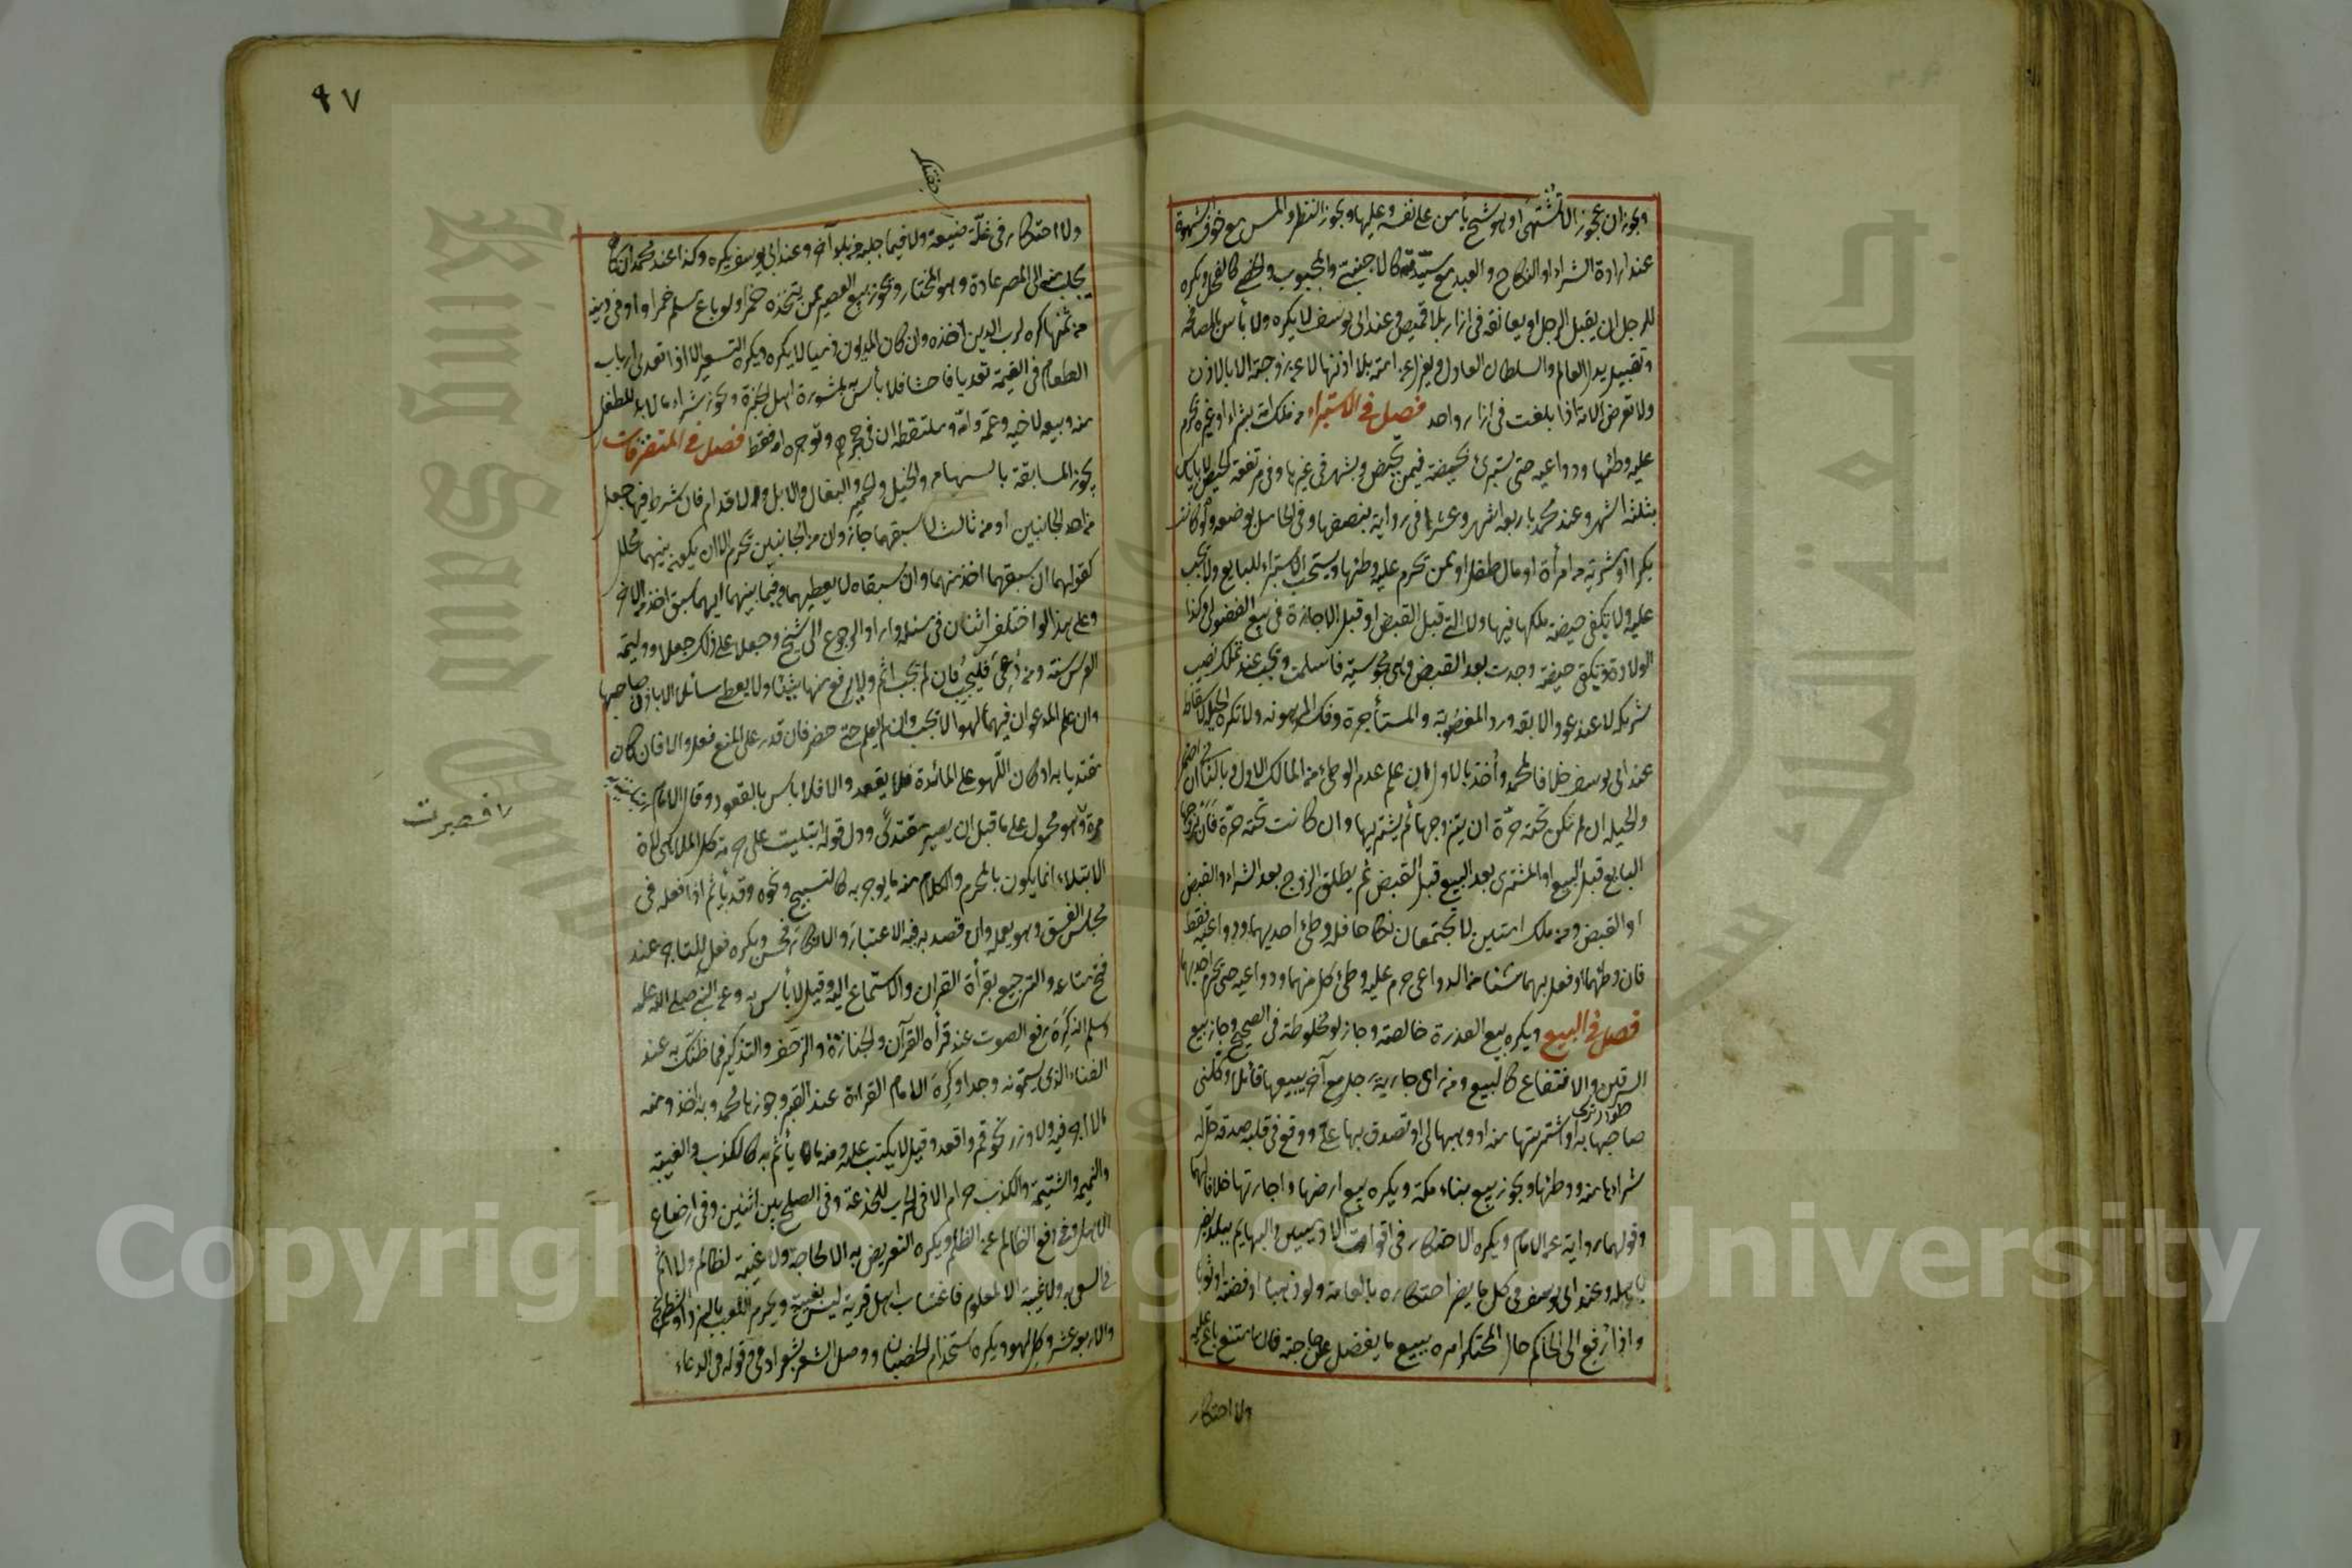 ويجوز ان عجوزا لا تشتهى او هو شيخ يأمن على نفسه وعليها ويجوز النظر والمس مع خوف الشهوة
عند ارادة الشراء او النكاح والعبد مع سيدته كالاجنبي والمجبوب والخصي كالفحل ويكره
للرجل ان يقبل الرجل او يعانقه في ازار بلا قميص وعند ابي يوسف لا يكره ولا بأس بالمصافحة
وتقبيل يد العالم والسلطان العادل ويعزل عن امته بلا اذنها لا عن زوجته الا بالاذن
ولا تعرض الامة اذا بلغت في ازار واحد فصل في الاستبراء من ملك امة بشراء او غيره يحرم
عليه وطئها ودواعيه حتى يستبرئ بحيضة فيمن تحيض وبشهر في غيرها وفي مرتفعة الحيض لا باياس
بثلثة اشهر وعند محمد باربعة اشهر وعشر وفي رواية بنصفها وفي الحامل بوضعه ولو كانت
بكرا او مشرية من امرأة او مال طفل او ممن تحرم عليه وطئها ويستحب الاستبراء للبايع ولا يجب
عليه ولا يكفي حيضة ملكها فيها ولا التي قبل القبض او قبل الاجازة في بيع الفضولي وكذا
الولادة ويكفي حيضة وجدت بعد القبض وهي مجوسية فاسلمت ويجب عند تملك نصيب
شريكه لا عند عود الآبقة ورد المغصوبة والمستأجرة وفك المرهونة ولا تكره الحيلة لاسقاطه
عند ابي يوسف خلافا لمحمد وأخذ بالاول ان علم عدم الوطئ من المالك الاول وبالثاني ان
والحيلة ان لم تكن تحته حرة ان يتزوجها ثم يشتريها وان كانت تحته حرة فان يزوجها
البايع قبل البيع او المشتري بعد البيع قبل القبض ثم يطلق الزوج بعد الشراء والقبض
او القبض ومن ملك امتين لا تجتمعان نكاحا فله وطئ احديهما ودواعيه فقط
فان وطئهما او فعل بهما شيئا من الدواعي حرم عليه وطئ كل منهما ودواعيه حتى يحرم احديهما
فصل في البيع ويكره بيع العذرة خالصة وجاز لو مخلوطة في الصحيح وجاز بيع
السرقين والانتفاع كالبيع ومن رأى جارية رجل مع آخر يبيعها قائلا وكلني
صاحبها به او اشتريتها منه او وهبها لي او تصدق بها علي ووقع في قلبه صدقه حل له
شراءها منه ووطئها ويجوز بيع بناء مكة ويكره بيع ارضها واجارتها خلافا لهما
وقولهما رواية عن الامام ويكره الاحتكار في اقوات الآدميين والبهايم ببلد يضر
باهله وعند ابي يوسف في كل ما يضر احتكاره بالعامة ولو ذهبا او فضة او ثوبا
واذا رفع الى الحاكم حال المحتكر امره ببيع ما يفضل عن حاجته فان امتنع باع عليه
ولا احتكار
٩٧
ولا احتكار في غلة ضيعته ولا فيما جلبه من بلد آخر وعند ابي يوسف يكره وكذا عند محمد ان كان
يجلب منه الى المصر عادة وهو المختار ويجوز بيع العصير ممن يتخذه خمرا ولو باع مسلم خمرا واوفى دينه
من ثمنها كره لرب الدين اخذه وان كان المديون ذميا لا يكره ويكره التسعير الا اذا تعدى ارباب
الطعام في القيمة تعديا فاحشا فلا بأس به بمشورة اهل الخبرة ويجوز شراء ما لا بد للطفل
منه وبيعه لاخيه وعمه وامه وملتقطه ان في حجرهم وتوجره امه فقط فصل في المتفرقات
يجوز المسابقة بالسهام والخيل والحمير والبغال والابل والاقدام فان شرط فيها جعل
من احد الجانبين او من ثالث لاسبقهما جاز وان من الجانبين يحرم الا ان يكون بينهما محلل
كقولهما ان سبقهما اخذ منهما وان سبقاه لا يعطيهما وفيما بينهما ايهما سبق اخذ من الآخر
وعلى هذا لو اختلف اثنان في مسئلة وارادا الرجوع الى شيخ وجعلا على ذلك جعلا ووليمة
العرس سنة ومن دعي فليجب فان لم يجب اثم ولا يرفع منها شيئا ولا يعط سائلا الا باذن صاحبها
وان علم المدعو ان فيها لهوا لا يجب وان لم يعلم حتى حضر فان قدر على المنع فعل والا فان كان
مقتديا به او كان اللهو على المائدة فلا يقعد والا فلا بأس بالقعود وقال الامام ابتليت به
مرة وهو محمول على ما قبل ان يصير مقتدى ودل قوله ابتليت على حرمة كل الملاهي لان
الابتلاء انما يكون بالمحرم والكلام منه ما يوجر به كالتسبيح ونحوه وقد يأثم اذا فعله في
مجلس الفسق وهو يعمله وان قصد به فيه الاعتبار والانكار فحسن ويكره فعله للتاجر عند
فتح متاعه والترجيع بقرأة القران والاستماع اليه وقيل لا بأس به وعن النبي صلى الله عليه
وسلم انه كره رفع الصوت عند قرأة القرآن والجنازة والزحف والتذكير فما ظنك به عند
الغناء الذي يسمونه وجدا وكره الامام القراءة عند القبر وجوزها محمد وبه اخذ ومنه
ما لا اجر فيه ولا وزر نحو قم واقعد وقيل لا يكتب عليه ومنه ما يأثم به كالكذب والغيبة
والنميمة والشتيمة والكذب حرام الا في الحرب للخدعة وفي الصلح بين اثنين وفي ارضاء
الاهل وفي دفع الظالم عن الظلم ويكره التعريض به الا لحاجة ولا غيبة لظالم ولا اثم
في السعي به ولا غيبة الا لمعلوم فاغتياب اهل قرية ليس بغيبة ويحرم اللعب بالنرد او الشطرنج
والاربعة عشر وكل لهو ويكره استخدام الخصيان ووصل الشعر بشعر ادمي وقوله في الدعاء